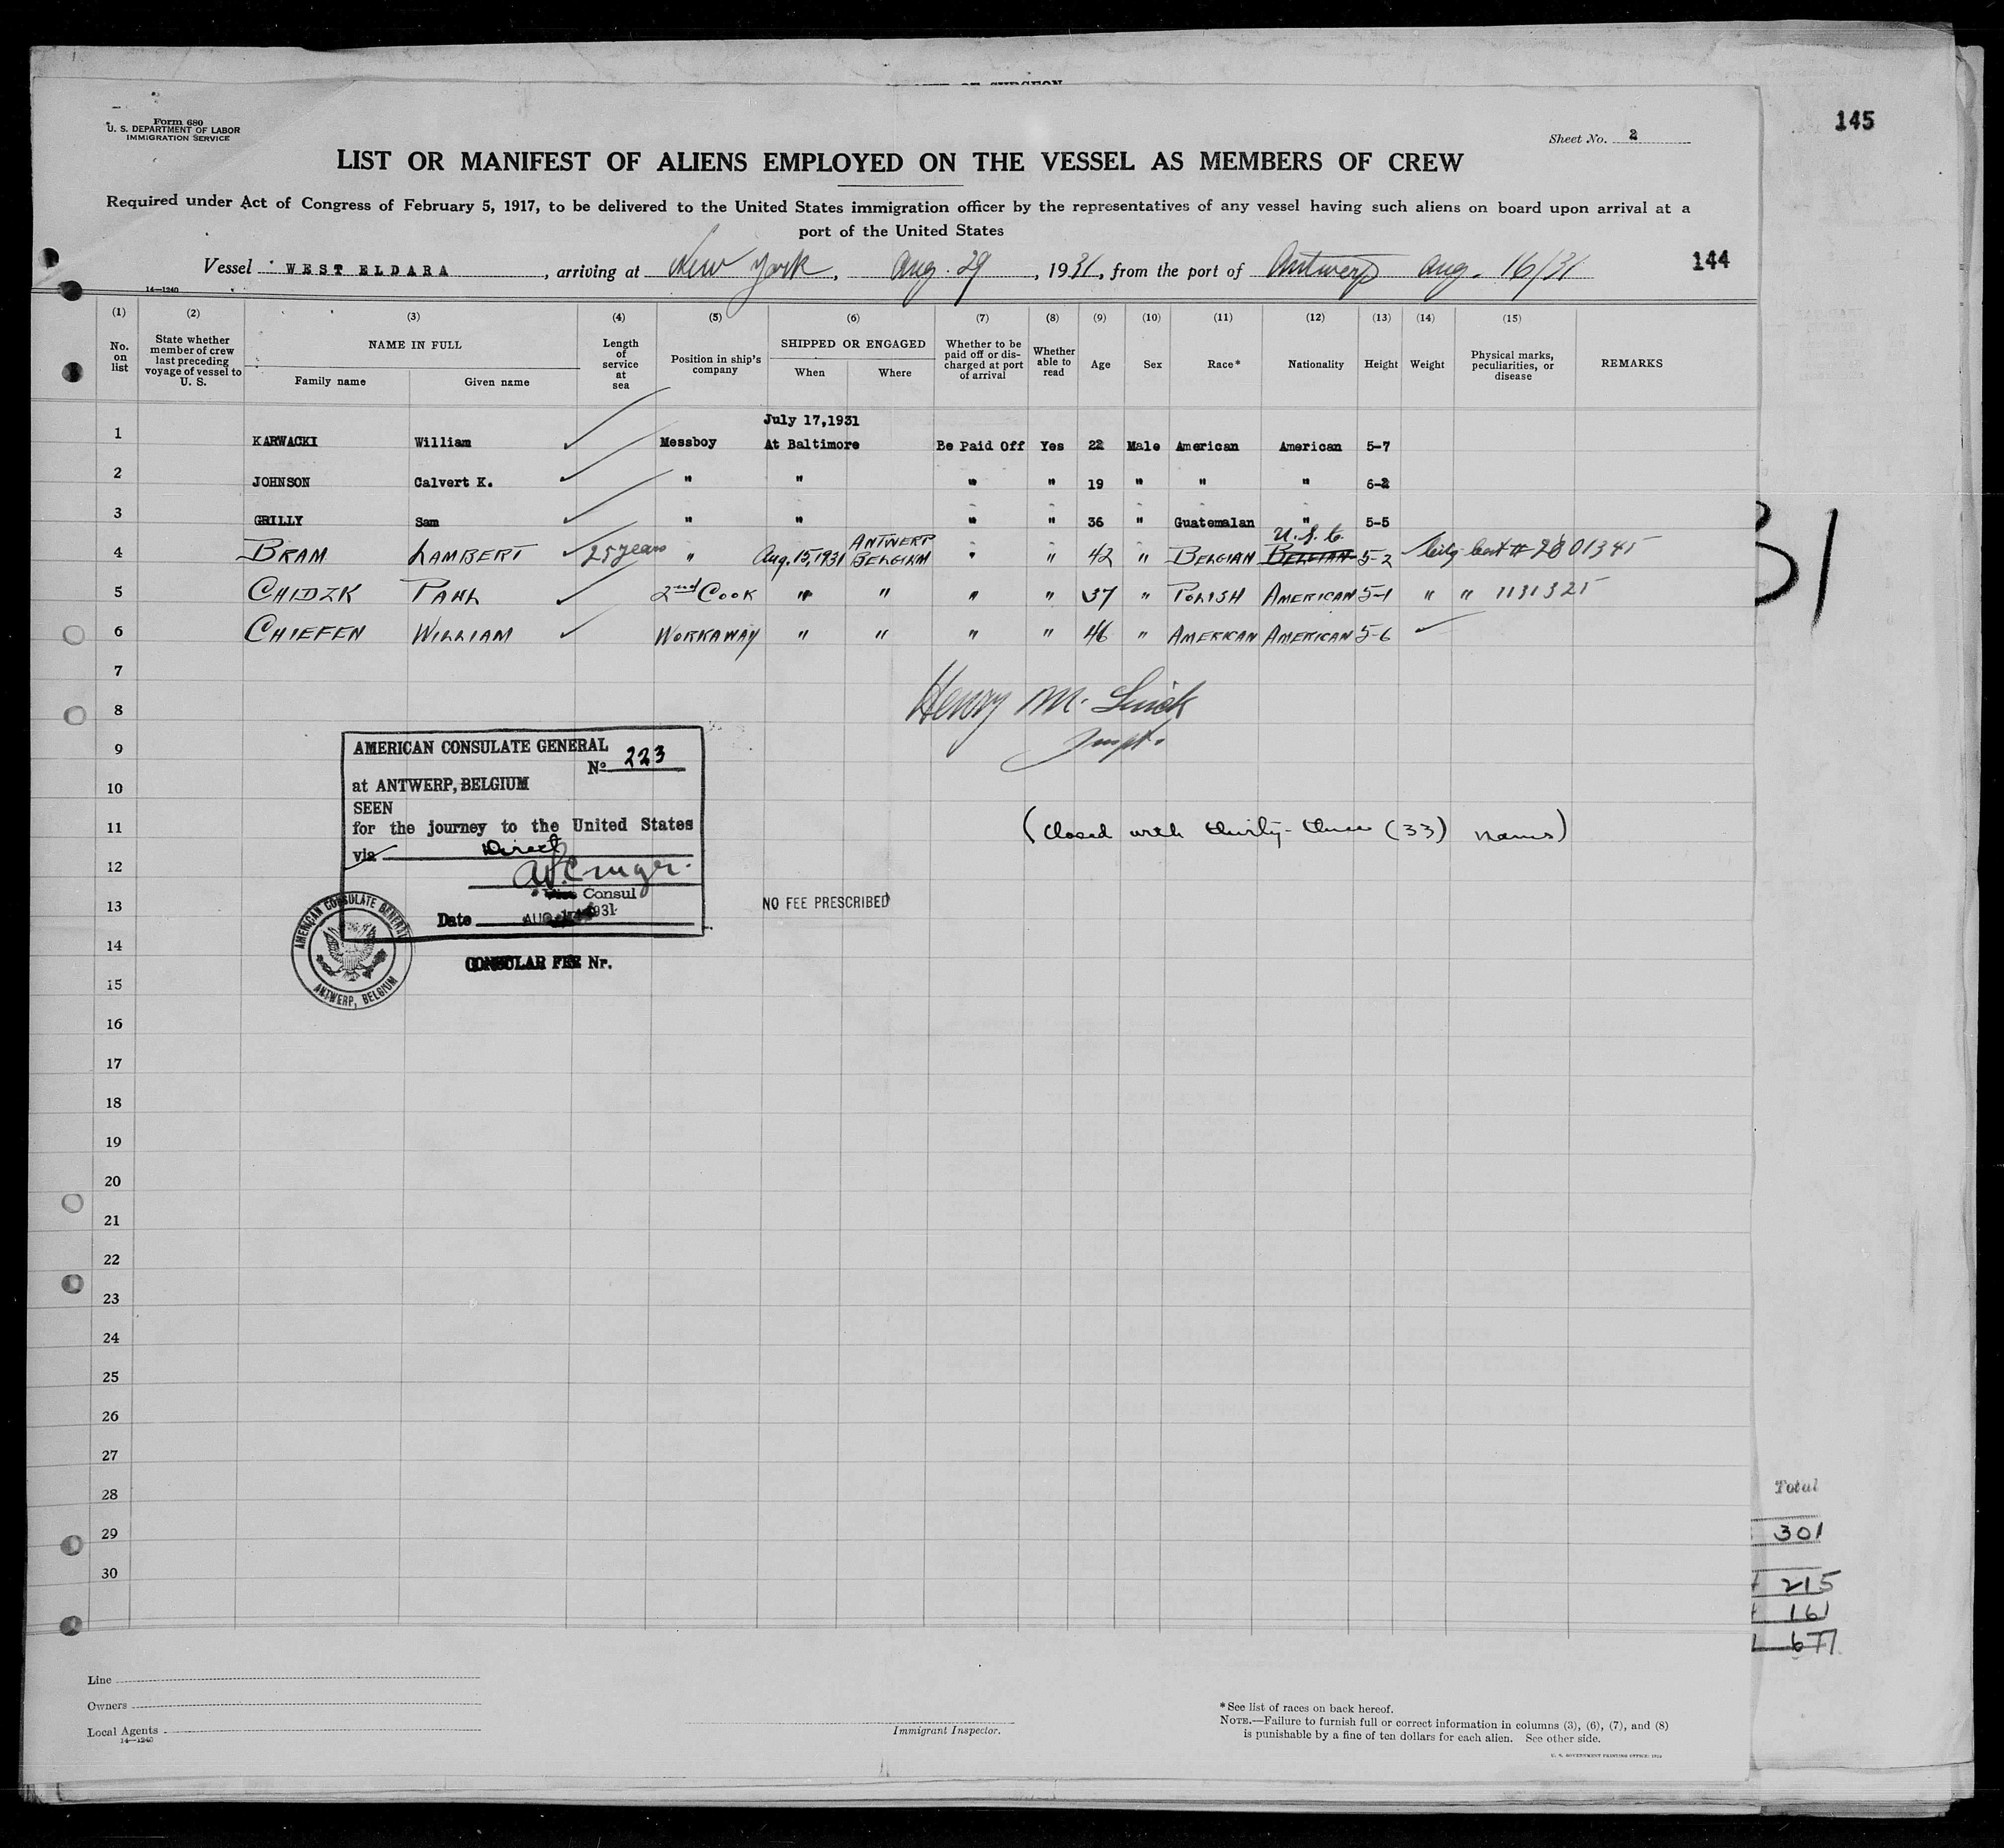 145
Form 680
U. S. DEPARTMENT OF LABOR
IMMIGRATION SERVICE
Sheet No. 2
LIST OR MANIFEST OF ALIENS EMPLOYED ON THE VESSEL AS MEMBERS OF CREW
Required under Act of Congress of February 5, 1917, to be delivered to the United States immigration officer by the representatives of any vessel having such aliens on board upon arrival at a
port of the United States
Vessel WEST ELDARA, arriving at New York, Aug. 29, 1931, from the port of Antwerp Aug. 16/31
144
14—1240
(1) (2) (3) (4) (5) (6) (7) (8) (9) (10) (11) (12) (13) (14) (15)
No. on list State whether member of crew last preceding voyage of vessel to U. S. NAME IN FULL Family name Given name Length of service at sea Position in ship's company SHIPPED OR ENGAGED When Where Whether to be paid off or discharged at port of arrival Whether able to read Age Sex Race* Nationality Height Weight Physical marks, peculiarities, or disease REMARKS
July 17,1931
1 KARWACKI William Messboy At Baltimore Be Paid Off Yes 22 Male American American 5-7
2 JOHNSON Calvert K. " " " " 19 " " " 6-2
3 GRILLY Sam " " " " 36 " Guatemalan " 5-5
U.S.C.
4 BRAM LAMBERT 25 years " Aug. 15, 1931 ANTWERP BELGIUM " " 42 " BELGIAN BELGIAN 5-2 # 2801345
5 CHIDZK PAUL 2nd COOK " " " " 37 " POLISH AMERICAN 5-1 " " 1131325
6 CHIEFEN WILLIAM WORKAWAY " " " " 46 " AMERICAN AMERICAN 5-6
7
8
9
10
11
12
13
14
15
16
17
18
19
20
21
22
23
24
25
26
27
28
29
30
Henry M.
(Closed with thirty-three (33) names)
AMERICAN CONSULATE GENERAL
No 223
at ANTWERP, BELGIUM
SEEN
for the journey to the United States
via Direct
Consul
Date AUG 1931
NO FEE PRESCRIBED
AMERICAN CONSULATE GENERAL
ANTWERP, BELGIUM
CONSULAR FEE Nr.
31
Total
301
215
161
677
Line
Owners
Local Agents
14—1240
Immigrant Inspector.
*See list of races on back hereof.
NOTE.—Failure to furnish full or correct information in columns (3), (6), (7), and (8)
is punishable by a fine of ten dollars for each alien. See other side.